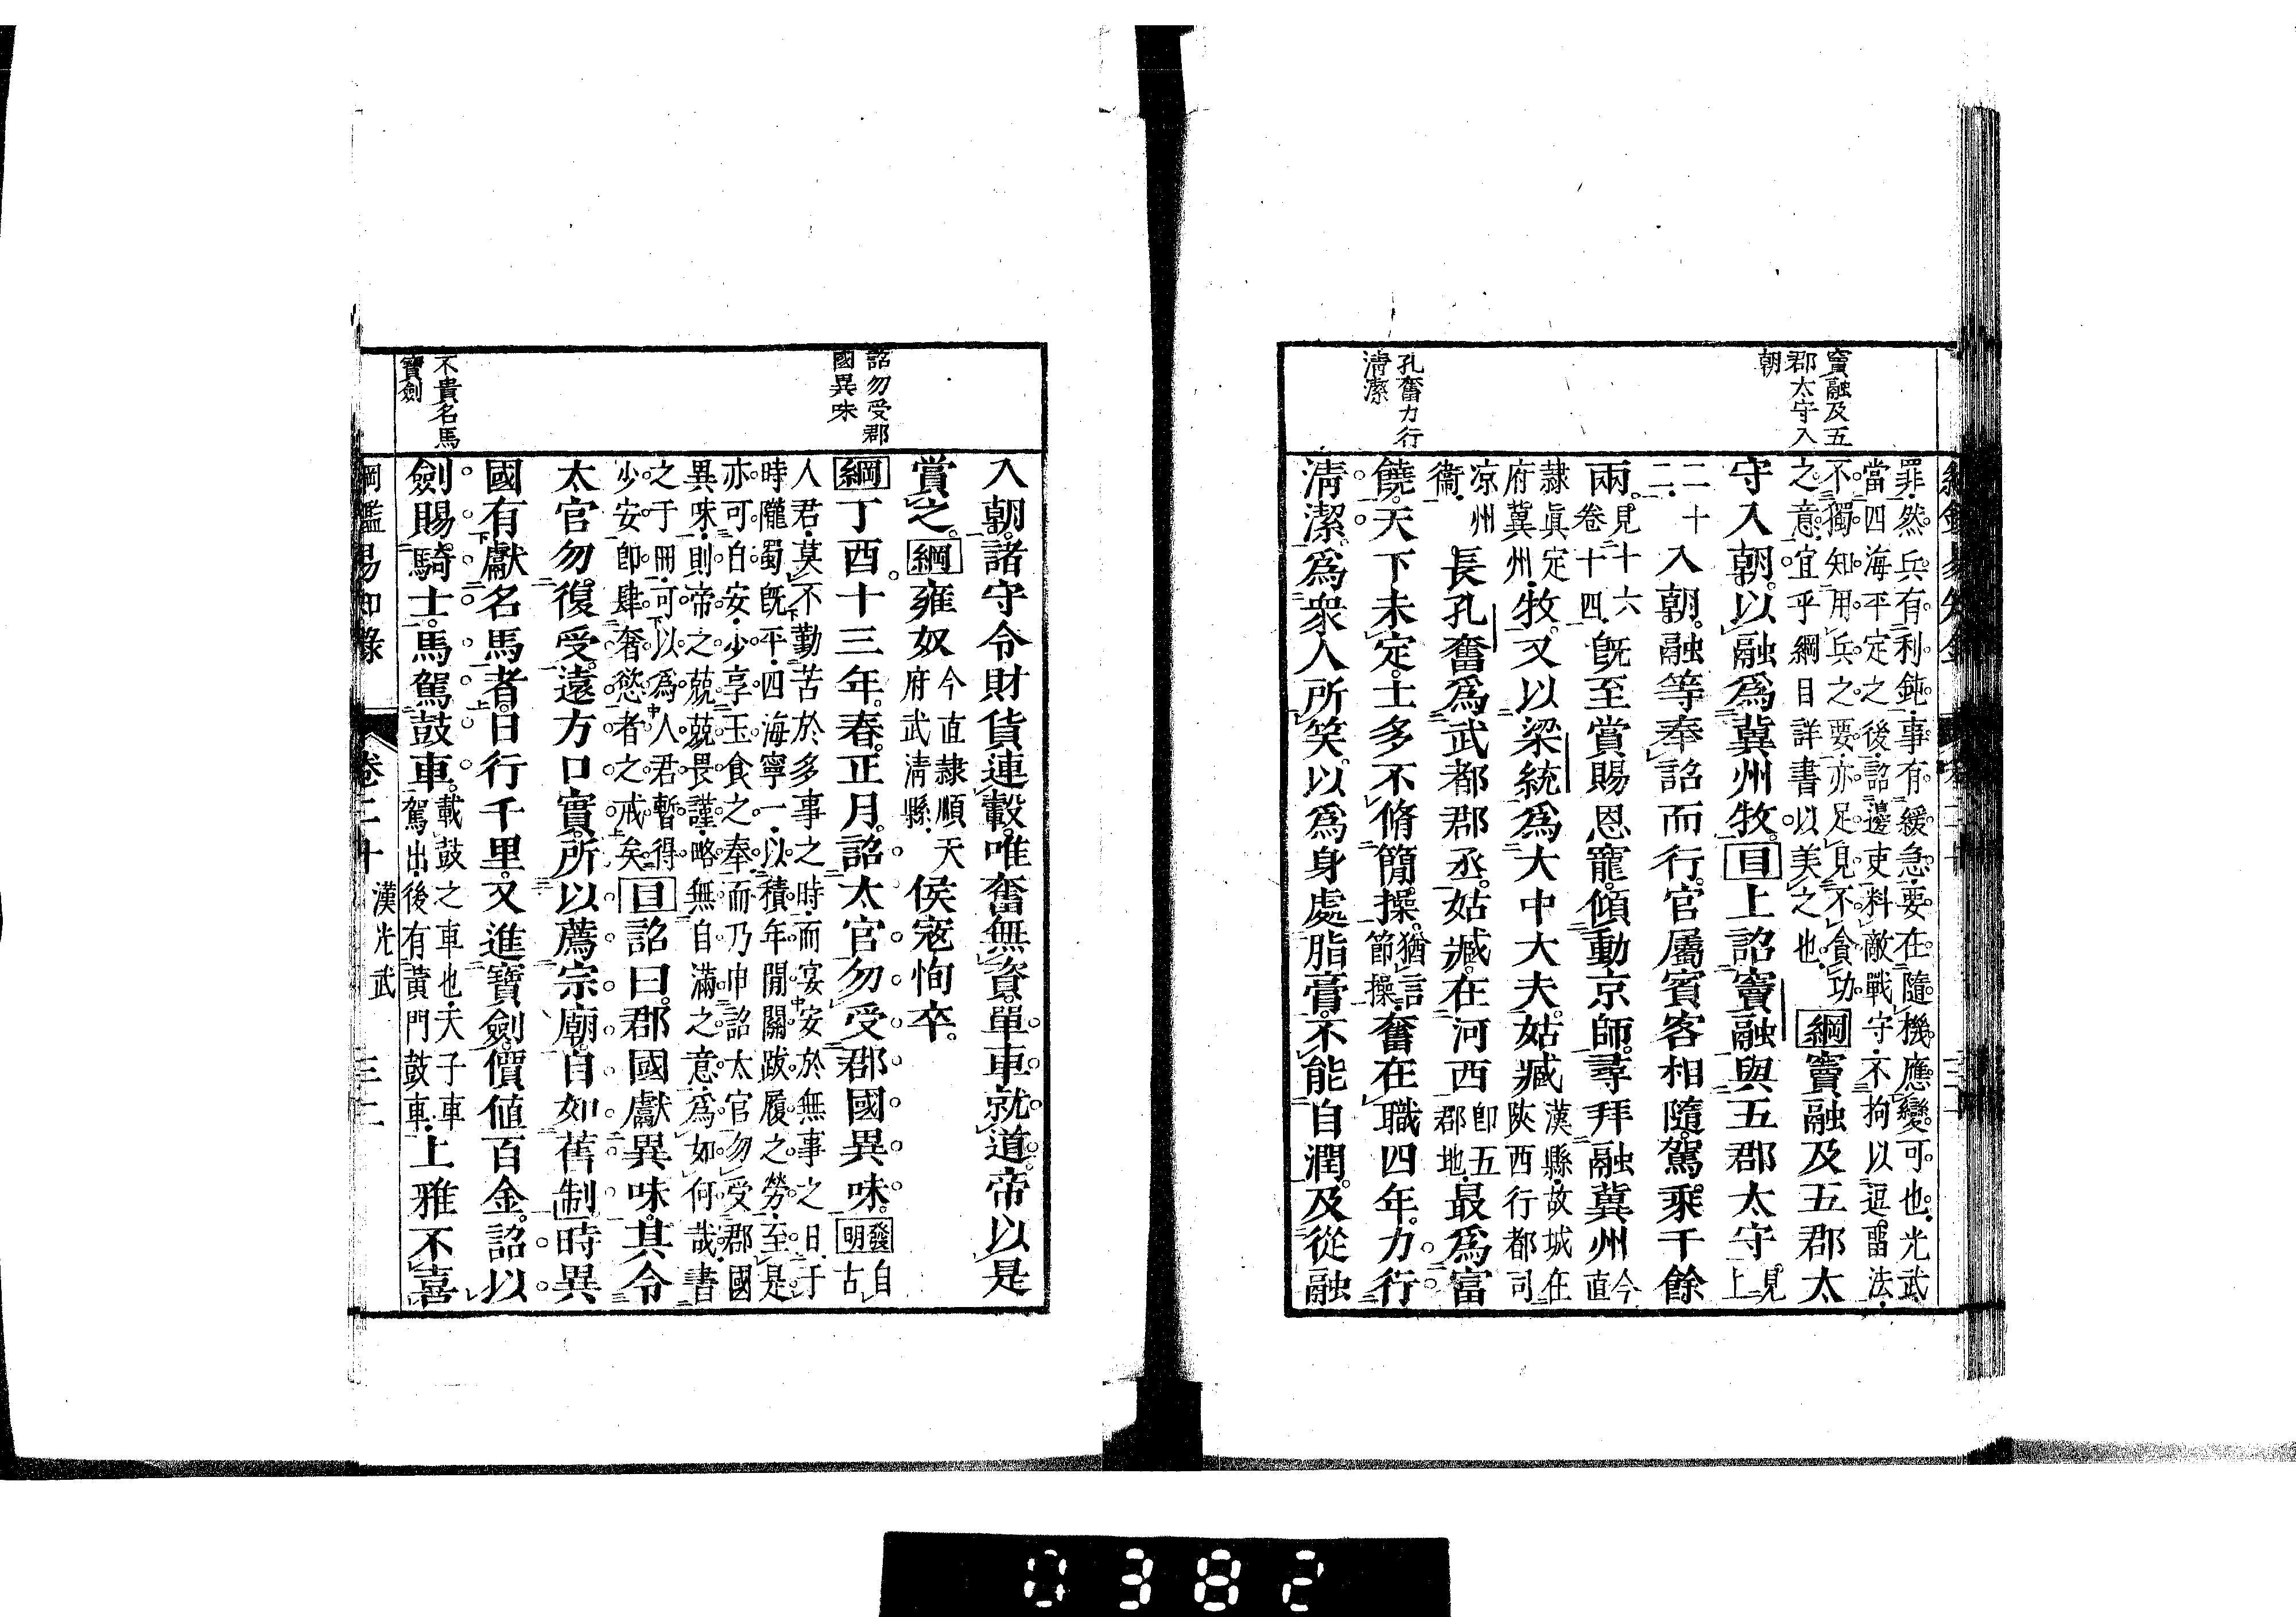 竇融及五
郡太守入
朝
孔奮力行
淸潔
罪然兵有利鈍事有緩急要在隨機應變可也光武
當四海平定之後詔邊吏料敵戰守不拘以逗畱法
不獨知用兵之要亦足見不貪功
之意宜乎綱目詳書以美之也 綱竇融及五郡太
守入朝以融爲冀州牧目上詔竇融與五郡太守見上
二十二入朝融等奉詔而行官屬賓客相隨駕乘千餘
兩見十六卷十四既至賞賜恩寵傾動京師尋拜融冀州今直
隸眞定府冀州牧又以梁統爲大中大夫姑臧漢縣故城在陝西行都司
凉州衞長孔奮爲武都郡丞姑臧在河西卽五郡地最爲富
饒天下未定士多不脩簡操猶言節操奮在職四年力行
淸潔爲衆人所笑以爲身處脂膏不能自潤及從融
詔勿受郡
國異味
不貴名馬
寶劍
入朝諸守令財貨連轂唯奮無資單車就道帝以是
賞之綱雍奴今直隸順天府武淸縣侯寇恂卒
綱丁酉十三年春正月詔太官勿受郡國異味發明自古
人君莫不勤苦於多事之時而宴安於無事之日于
時隴蜀既平四海寧一以積年閒關跋履之勞至是
亦可自安少享玉食之奉而乃申詔太官勿受郡國
異味則帝之兢兢畏謹略無自滿之意爲如何哉書
之于冊可以爲人君暫得
少安卽肆奢慾者之戒矣目詔曰郡國獻異味其令
太官勿復受遠方口實所以薦宗廟自如舊制時異
國有獻名馬者日行千里又進寶劍價値百金詔以
劍賜騎士馬駕鼓車載鼓之車也天子車駕出後有黃門鼓車上雅不喜
綱鑑易知錄 卷二十 漢光武 三二